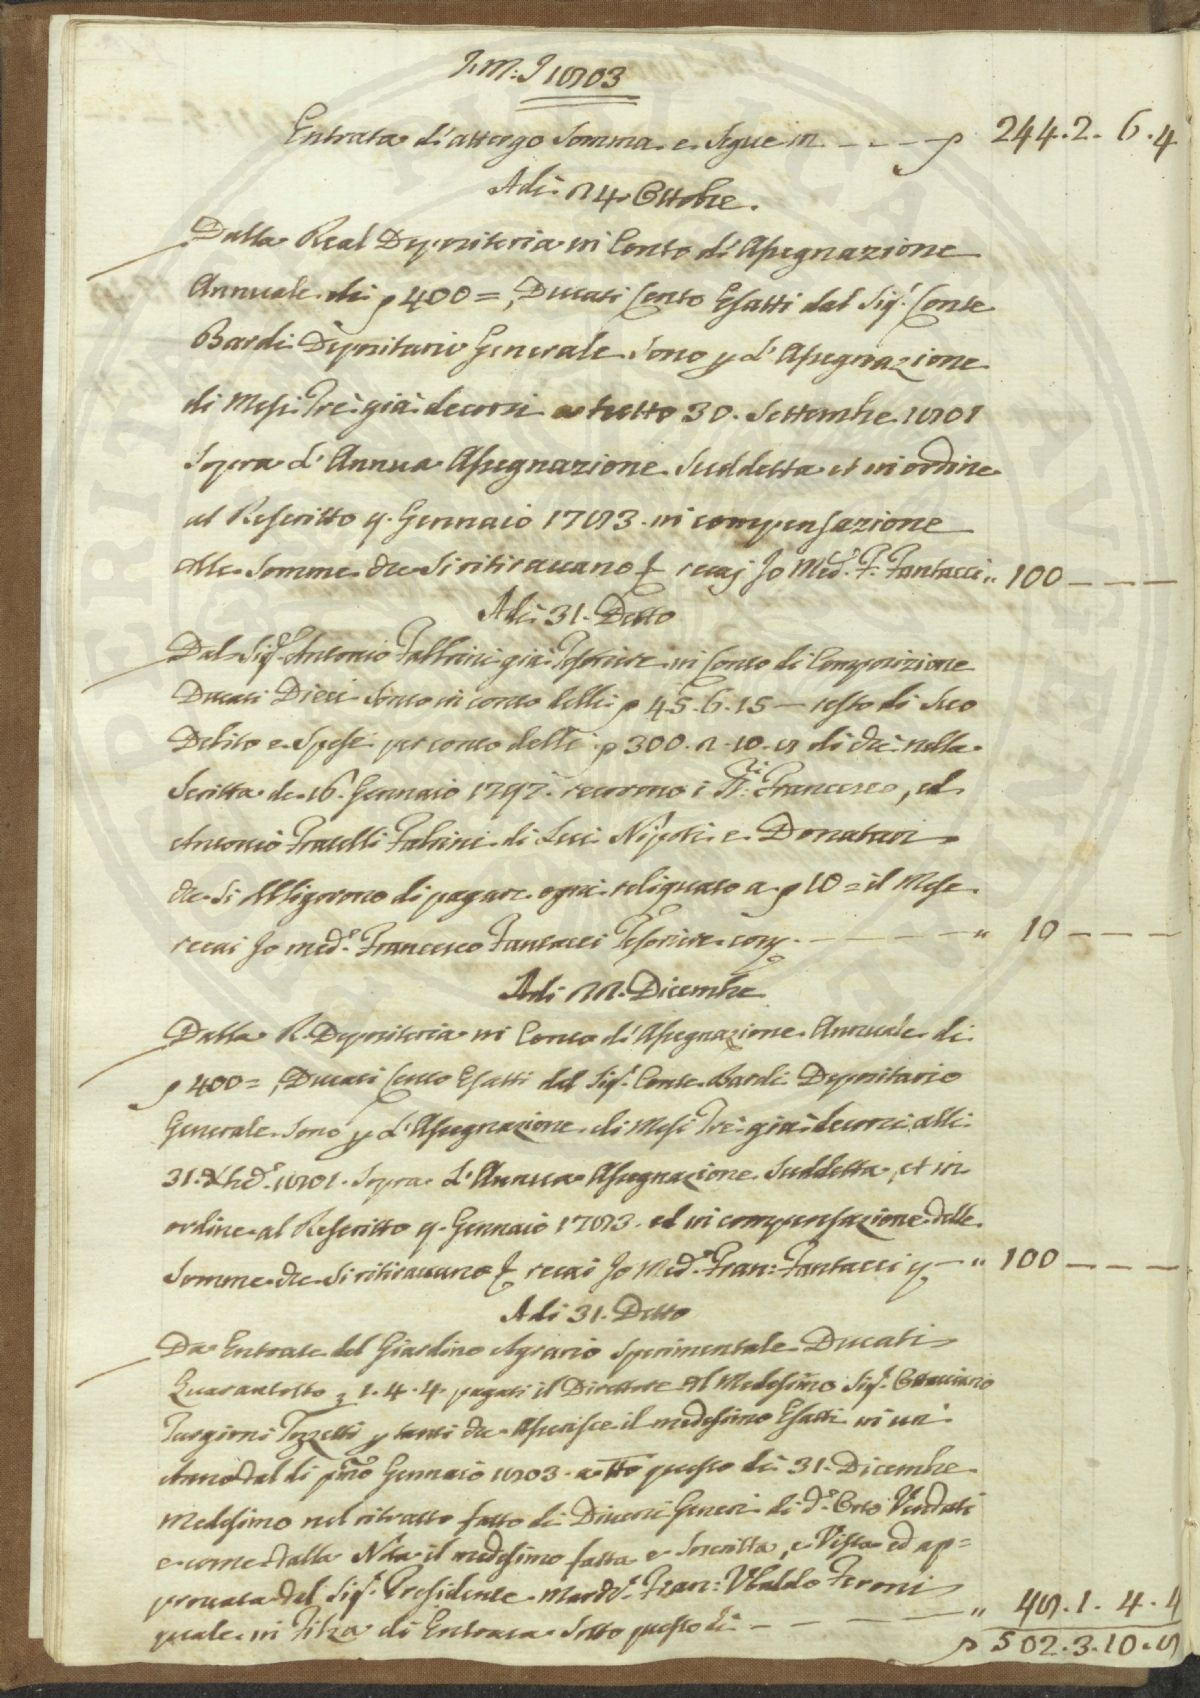 J: M: J 1803
Entrata d'attergo somma e segue in - - - - p 244. 2. 6. 4
Adi 24 Ottobre.
Dalla Real Depositeria in Conto di Assegnazione
Annuale di p 400 =, Ducati Cento Esatti dal Sig.r Conte
Bardi Depositario Generale sono p l'Assegnazione
di Mesi Tre già decorsi a tutto 30. Settembre 1801
sopra l'Annua Assegnazione suddetta et in ordine
al Rescritto 9. Gennaio 1783. in compensazione
delle somme che si ritiravano recaj Io Med.o F. Fantacci " 100 - - -
Adi 31. Detto
Dal Sig.r Antonio Fabbrini già Tesoriere in Conto di Composizione
Ducati Dieci sono in conto delli p 45. 6. 15 — resto di suo
Debito e spese per conto delli p 300. 2. 10. 8 di che nella
Scritta de 16. Gennaio 1797. recorono i Francesco, ed
Antonio Fratelli Fabrini di Lui Nipoti e Donatari
che si obbligorono di pagare ogni reliquato a p 10 = il Mese
recai Io med.o Francesco Fantacci Tesoriere - - - " 10 - - -
Adi 22. Dicembre
Dalla R. Depositeria in Conto di Assegnazione Annuale di
p 400 =, Ducati Cento Esatti dal Sig.r Conte Bardi Depositario
Generale sono p l'Assegnazione di Mesi Tre già decorsi alli
31. Xbre 1801. sopra l'Annua Assegnazione suddetta, et in
ordine al Rescritto 9. Gennaio 1783. ed in compensazione delle
somme che si ritiravano recai Io Med.o Fran: Fantacci — " 100 - - -
Adi 31. Detto
Da Entrate del Giardino Agrario Sperimentale Ducati
Quarantotto 1. 4. 4. pagati il Direttore del Medesimo Sig.r Ottaviano
Targioni Tozzetti p tanti che Asserisce il medesimo Esatti in un
Anno dal di p.mo Gennaio 1803. a tto questo di 31. Dicembre
Medesimo nel ritratto fatto di Diversi Generi di d.o Orto Venduti
e come dalla Nota il medesimo fatta e soscritta, e Vista ed ap=
provata dal Sig.r Presidente March.e Fran: Ubaldo Feroni
quale in Filza di Entrata sotto questo di - - - " 48. 1. 4. 4
p 502. 3. 10. 8